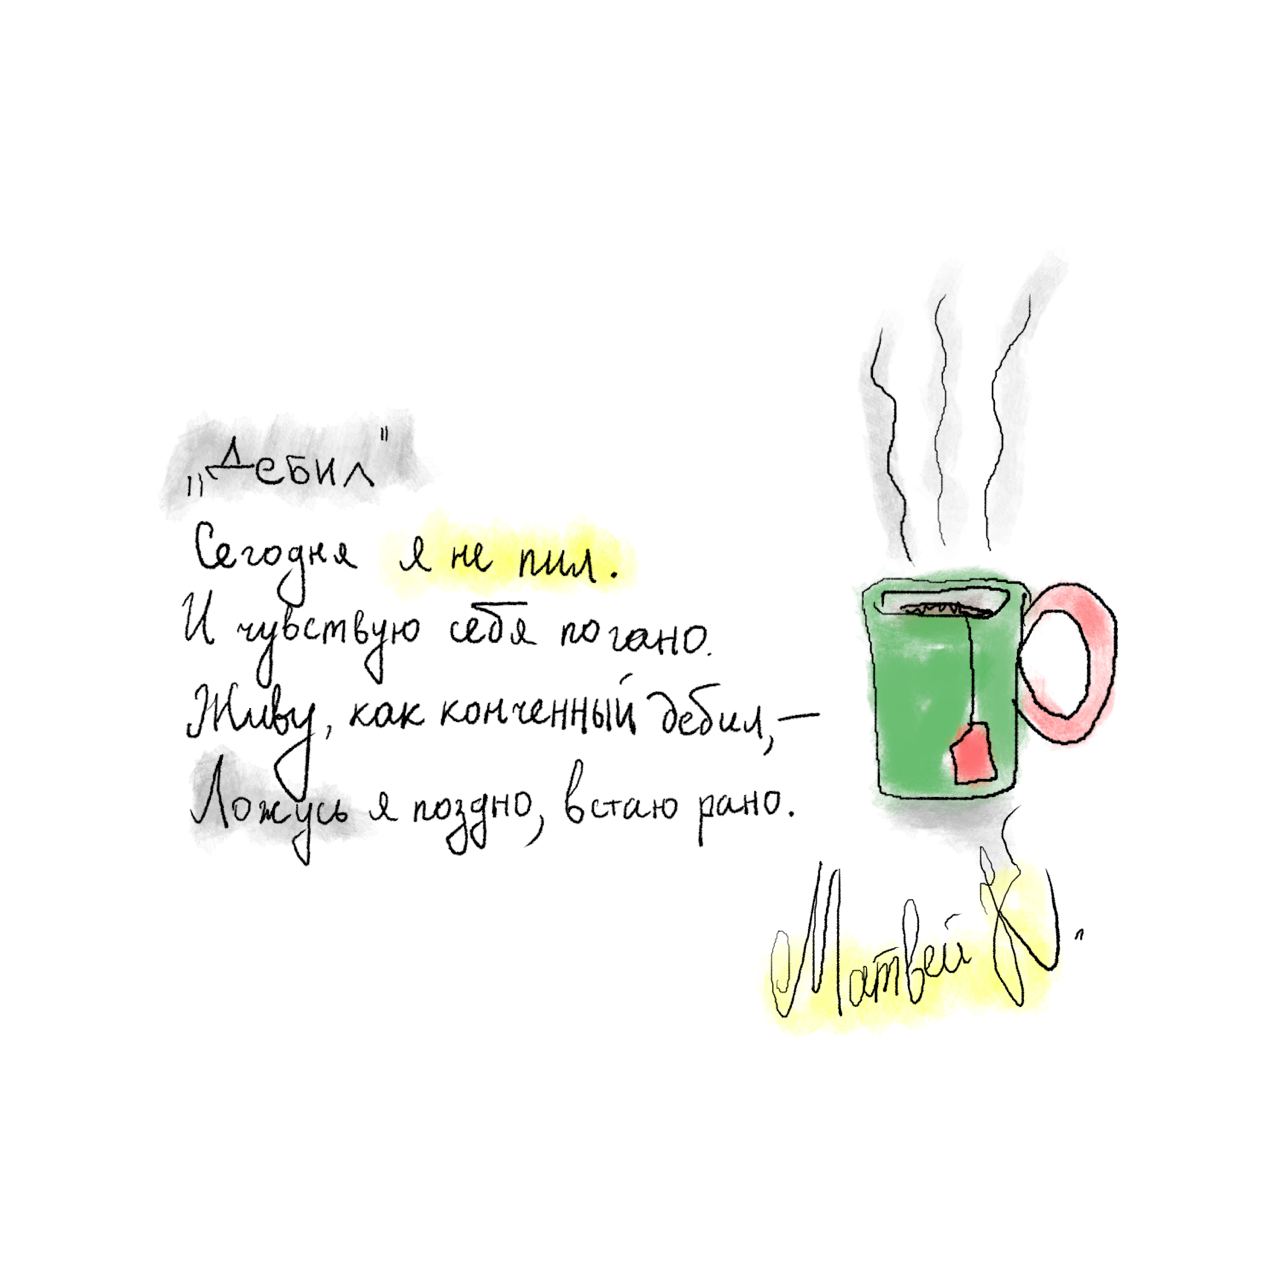 „Дебил"
Сегодня я не пил.
И чувствую себя погано.
Живу, как конченный дебил,—
Ложусь я поздно, встаю рано.
Матвей К.